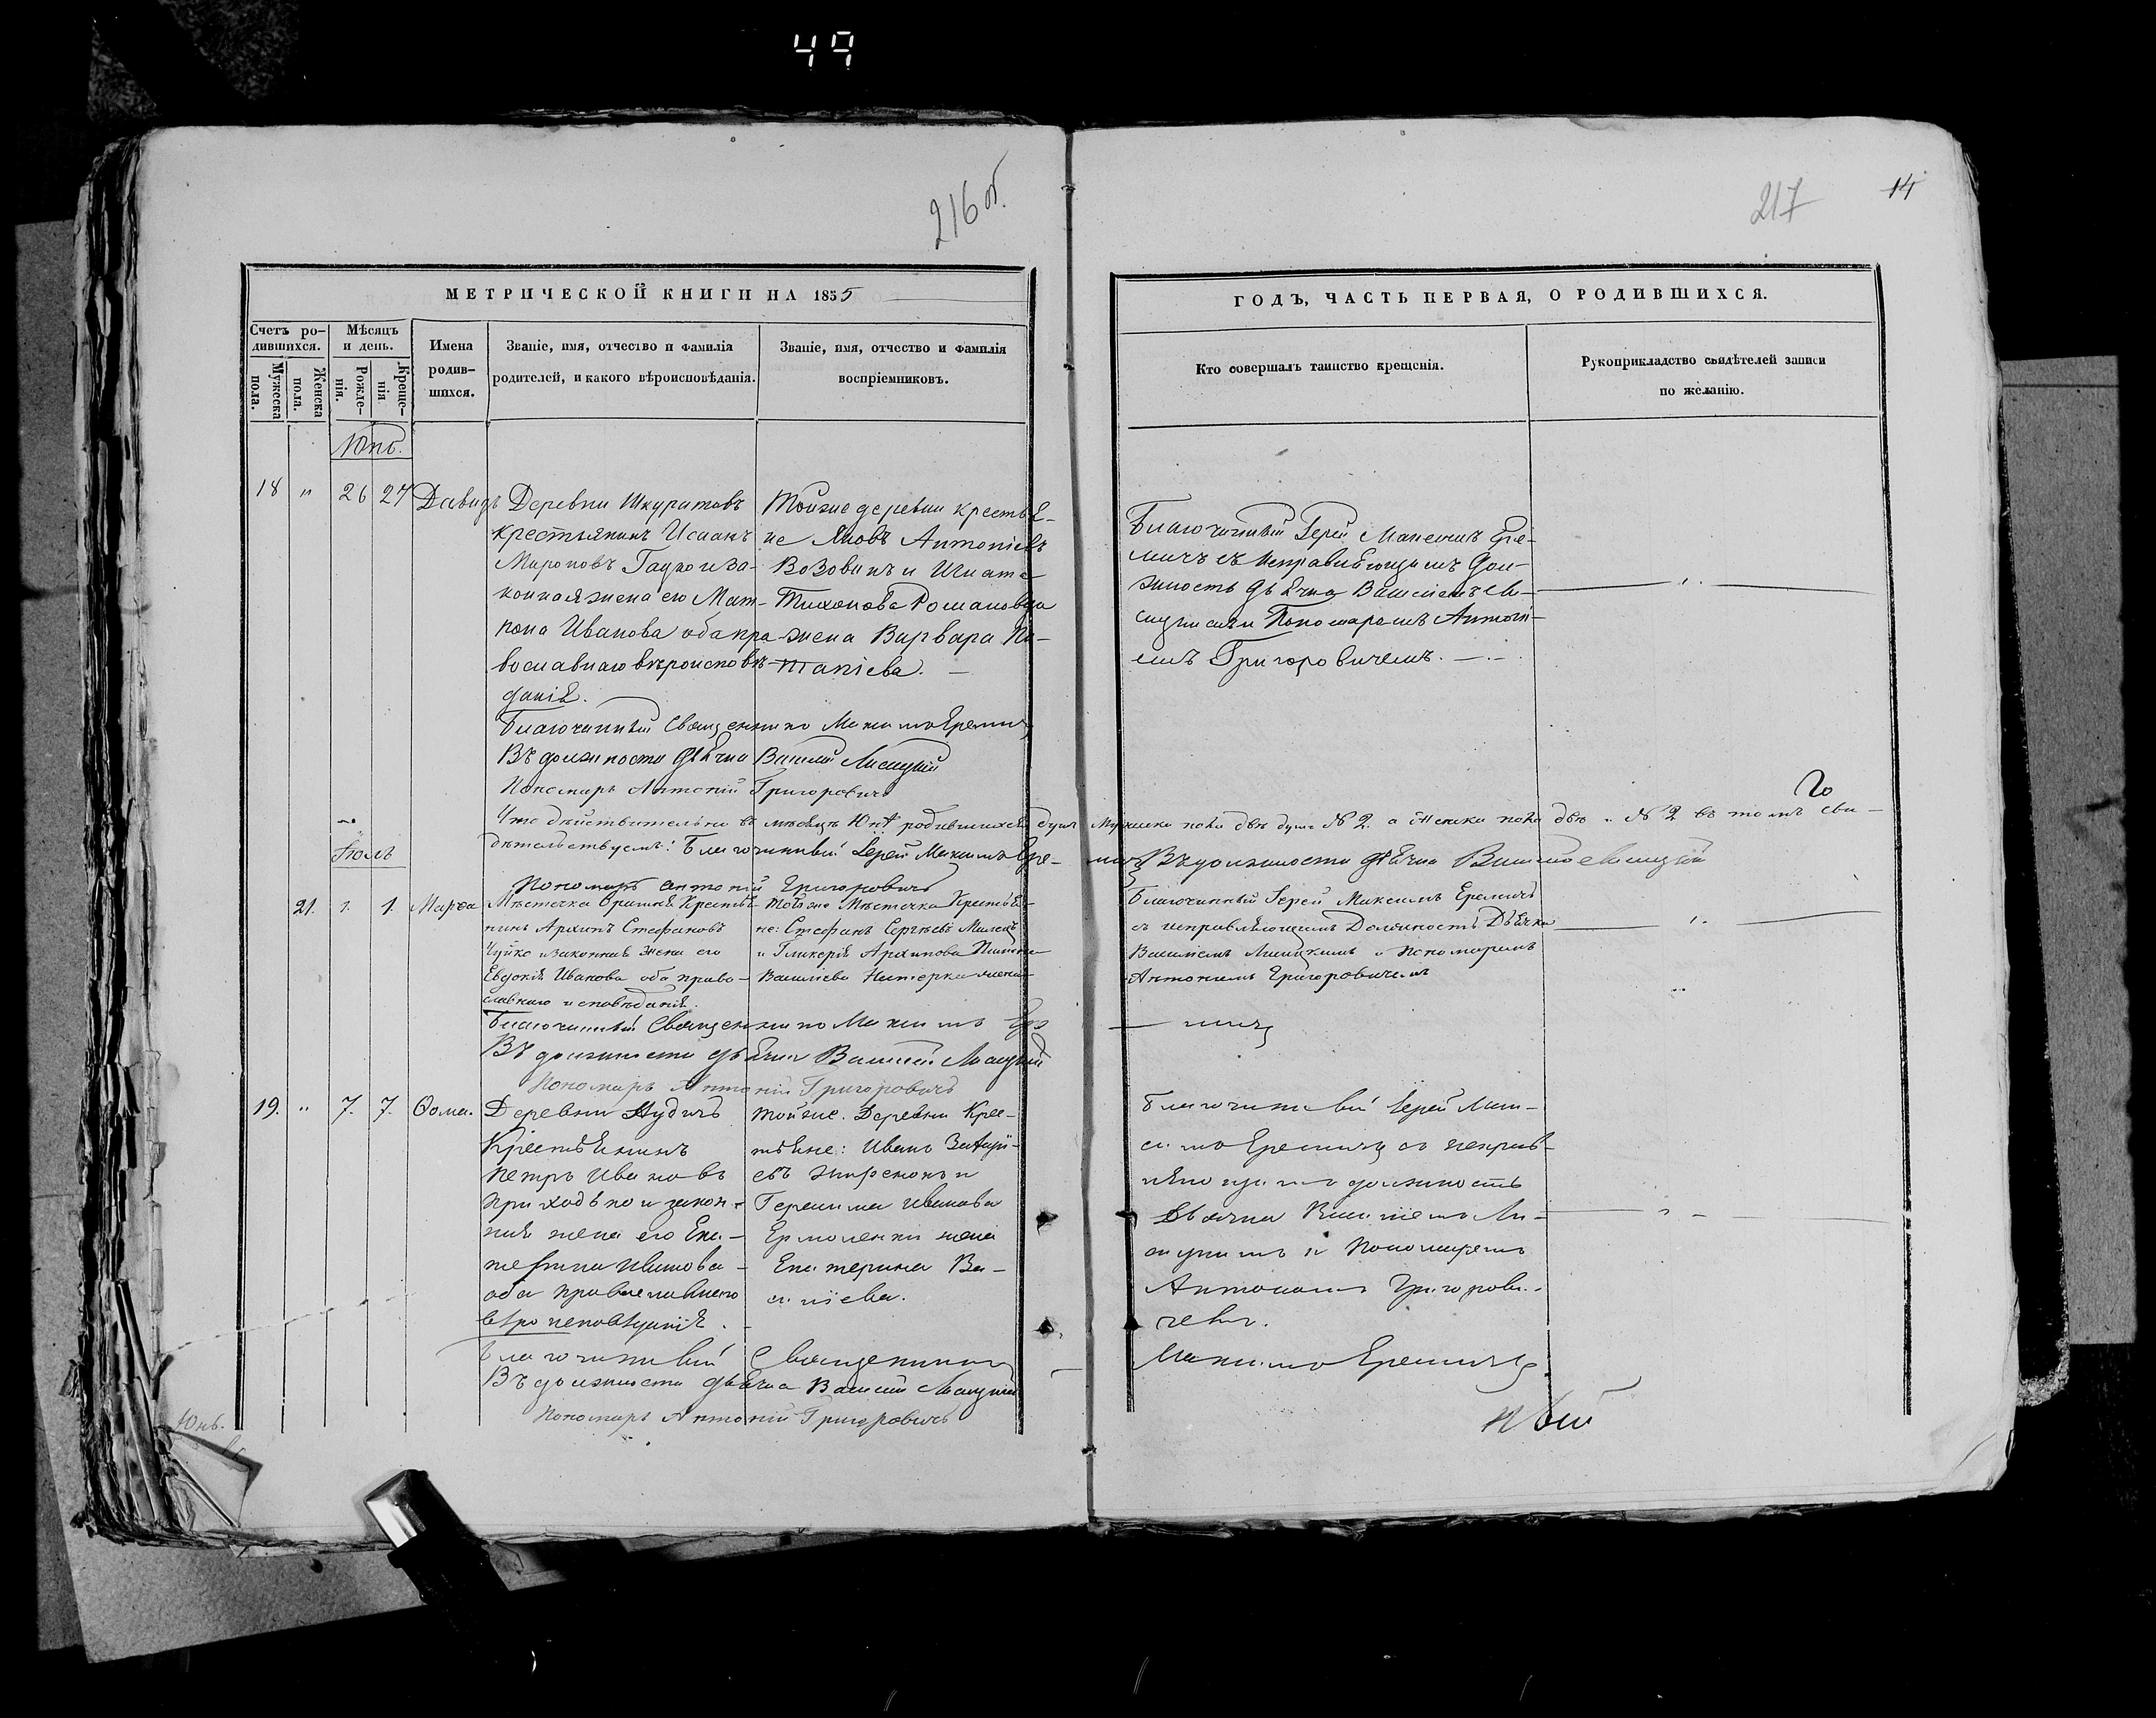 49
216 об.
217
14
МЕТРИЧЕСКОЙ КНИГИ НА 1855
ГОДЪ, ЧАСТЬ ПЕРВАЯ, О РОДИВШИХСЯ.
Счетъ родившихся.
Мужеска пола.
Женска пола.
Мѣсяцъ и день.
Рожденія.
Крещенія
Имена родившихся.
Званіе, имя, отчество и фамилія
родителей, и какого вѣроисповѣданія.
Званіе, имя, отчество и фамилія
воспріемниковъ.
Кто совершалъ таинство крещенія.
Рукоприкладство свидѣтелей записи
по желанію.
Юнь.
18 " 26 27 Давидъ
Деревни Шкуратовъ
крестьянинъ Исаакъ
Мироновъ Гацко и за-
конная жена его Мат-
рона Иванова оба пра-
вославнаго вѣроисповѣ-
данія.
Тойже деревни крестья-
не Яковъ Антоніевъ
Возовикъ и Игната
Тихонова Романовца
жена Варвара По-
тапіева.
Благочинный Іерей Максимъ Ере-
мичъ съ исправляющимъ дол-
жность дьячка Василіемъ Ли-
сицкимъ и Пономаремъ Антоні-
емъ Григоровичемъ.
Благочинный Священникъ Максимъ Еремичъ
Въ должности дьячка Василій Лисицкій
Пономарь Антоній Григоровичъ
Что дѣйствительно въ мѣсяцѣ Юнѣ родившихся душъ Мужеска пола двѣ души № 2. а Женска пола двѣ № 2 въ томъ сви-
дѣтельствуемъ: Благочинный Іерей Максимъ Ере- мичъ Въ должности дьячка Василій Лисицкій
Пономарь Антоній Григоровичъ
Іюль
21. 1. 1. Марѳа
Мѣстечка Крестья-
нинъ Архипъ Стефановъ
Чуйко и законная жена его
Евдокія Иванова оба право-
славнаго исповѣданія.
Тойже Мѣстечка Крестья-
не: Стефанъ Сергѣевъ
и Гликерія Архипова
Василіева жена
Благочинный Іерей Максимъ Еремичъ
съ исправляющимъ Должность Дьячка
Василіемъ Лисицкимъ и Пономаремъ
Антоніемъ Григоровичемъ
Благочинный Священникъ Максимъ Ере- мичъ
Въ должности дьячка Василій Лисицкій
Пономарь Антоній Григоровичъ
19. " 7. 7. Ѳома.
Деревни
Крестьянинъ
Петръ Ивановъ
Приходько и закон-
ная жена его Ека-
терина Иванова
оба православнаго
вѣроисповѣданія.
тойже Деревни Крес-
тьяне: Иванъ
евъ и
Герасима Иванова
Ермоленки жена
Екатерина Ва-
силіева.
Благочинный Іерей Мак-
симъ Еремичъ съ исправ-
ляющимъ должность
Дьячка Василіемъ Ли-
сицкимъ и Пономаремъ
Антоніемъ Григорови-
чемъ.
Благочинный Священникъ Максимъ Еремичъ
Въ должности дьячка Василій Лисицкій
Пономарь Антоній Григоровичъ
Юнь.